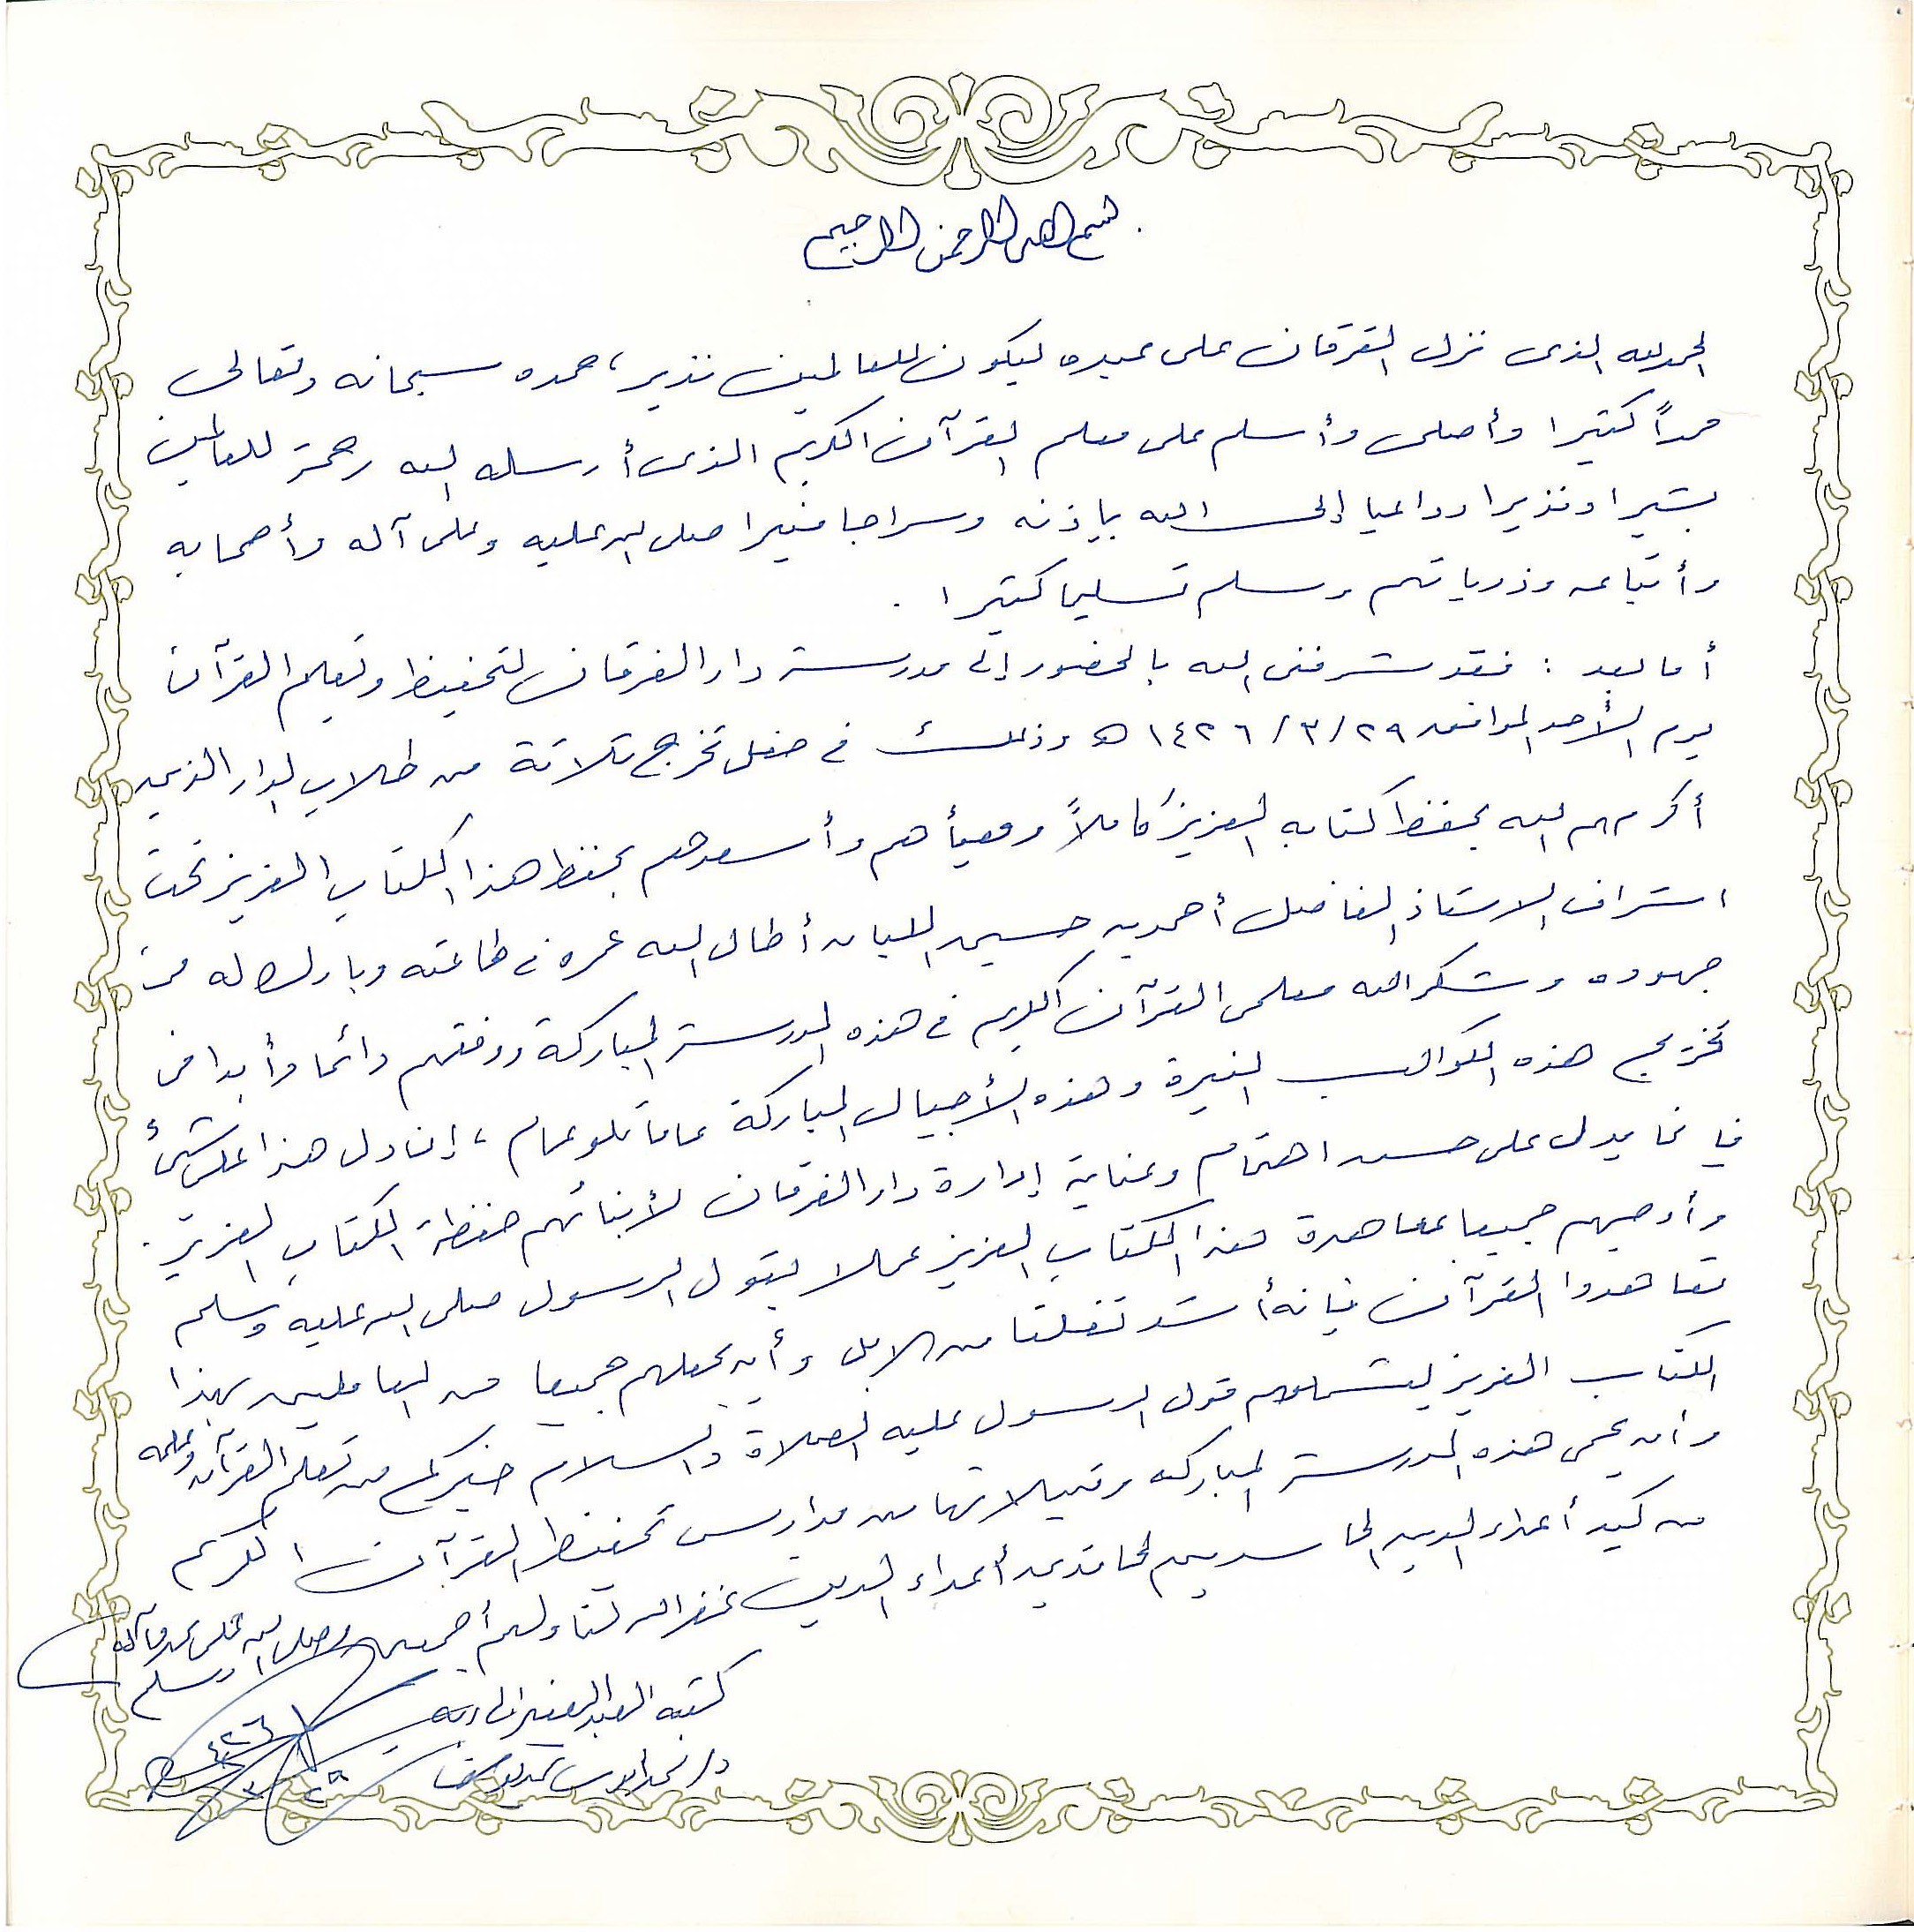 بسم الله الرحمن الرحيم
الحمد لله الذى نزل الفرقان على عبده ليكون للعالمين نذير، حمده سبحانه وتعالى
حمداً كثيرا وأصلى وأسلم على معلم القرآن الكريم الذى أرسله الله رحمة للعالمين
بشيرا ونذيرا وداعيا إلى الله بإذنه وسراجا منيرا صلى الله عليه وعلى آله وأصحابه
وأتباعه وذرياتهم وسلم تسليما كثيرا .
أما بعد : فقد شرفنى الله بالحضور إلى مدرسة دار الفرقان لتحفيظ وتعليم القرآن
يوم الأحد الموافق ٢٩/٣/١٤٢٦ هـ وذلك فى حفل تخرج ثلاثة من طلاب الدار الذين
أكرمهم الله بحفظ كتابه العزيز كاملاً وهيأهم وأسعدهم بحفظ هذا الكتاب العزيز تحت
اشراف الاستاذ الفاضل أحمد بن حسين أطال الله عمره فى طاعته وبارك له فى
جهوده وشكر الله معلمى القرآن الكريم فى هذه المدرسة المباركة ووفقهم دائما وأبدا فى
تخريج هذه الكواكب النيرة وهذه الأجيال المباركة عاما تلو عام ، إن دل هذا على شئ
فإنما يدل على حسن اهتمام وعناية إدارة دار الفرقان لأبنائهم حفظة الكتاب العزيز .
وأوصيهم جميعا بمعاهدة هذا الكتاب العزيز عملا بقول الرسول صلى الله عليه وسلم
تعاهدوا القرآن فإنه أشد تفلتا من الابل وأن يجعلهم جميعا من العاملين بهذا
الكتاب العزيز ليشملهم قول الرسول عليه الصلاة والسلام خيركم من تعلم القرآن وعلمه
وأن يحمى هذه المدرسة المباركه ومثيلاتها من مدارس تحفيظ القرآن الكريم
من كيد أعداء الدين الحاسدين الحاقدين أعداء الدين غفر الله لنا ولهم أجمعين وصلى الله على محمد وآله
وسلم
كتبه العبد الفقير إلى ربه
١٤٢٦